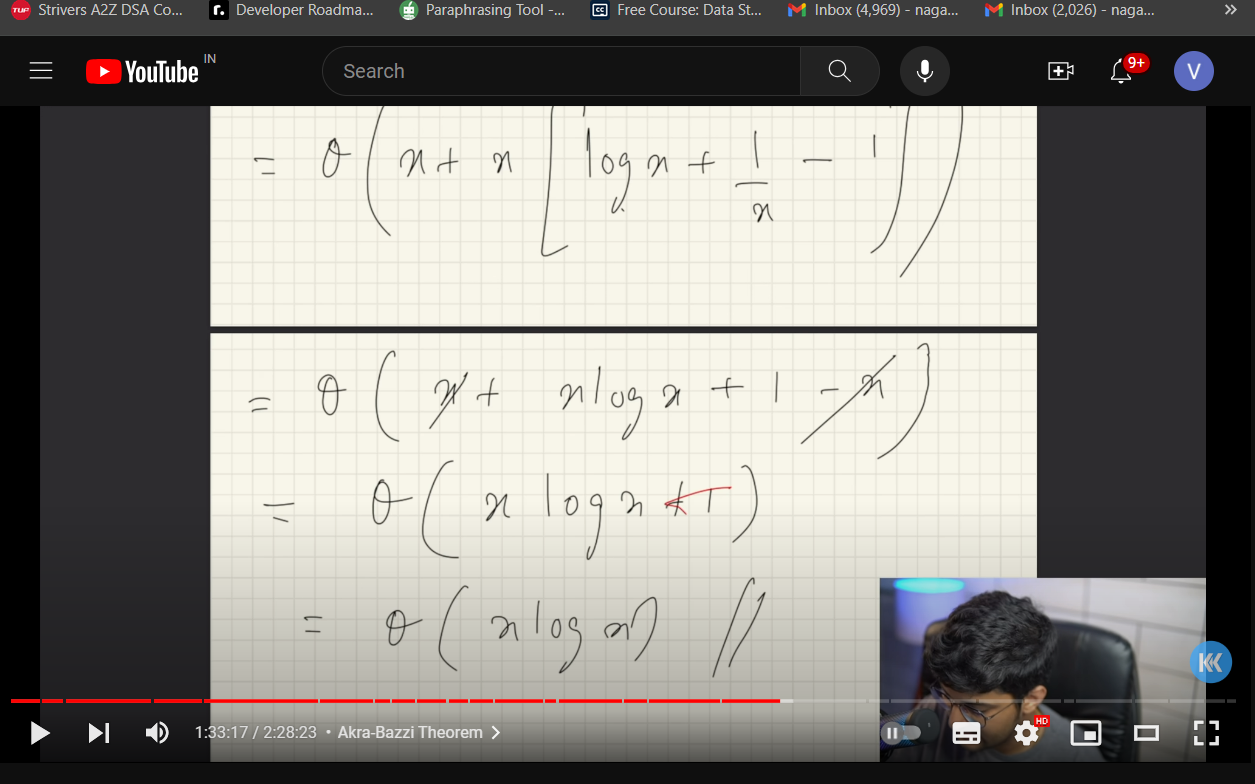 Strivers A2Z DSA Co... Developer Roadma... Paraphrasing Tool -... Free Course: Data St... Inbox (4,969) - naga... Inbox (2,026) - naga... »
YouTube IN Search 9+ V
= θ(x + x[log x + 1/x - 1))
= θ(x + x log x + 1 - x)
= θ(x log x + 1)
= θ(x log x) //
1:33:17 / 2:28:23 • Akra-Bazzi Theorem > HD